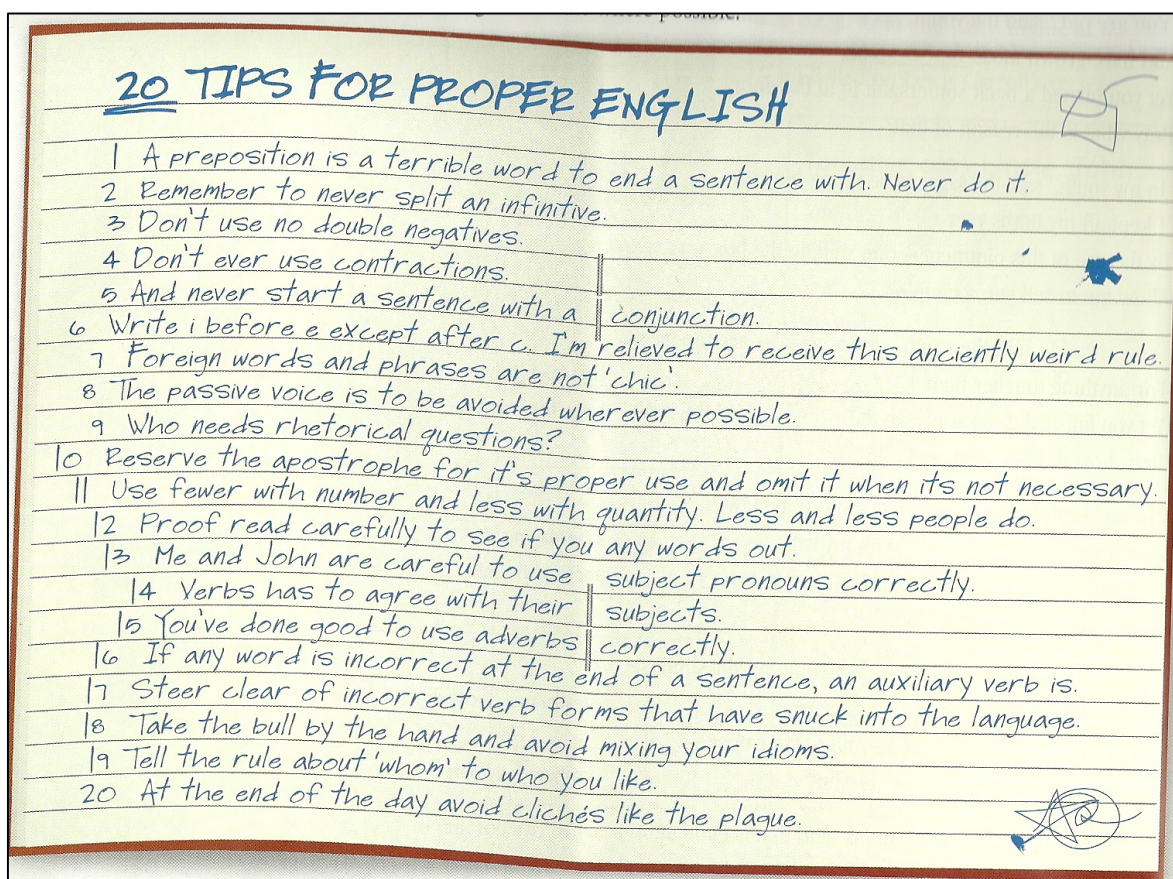 where possible.
20 TIPS FOR PROPER ENGLISH
1 A preposition is a terrible word to end a sentence with. Never do it.
2 Remember to never split an infinitive.
3 Don't use no double negatives.
4 Don't ever use contractions.
5 And never start a sentence with a conjunction.
6 Write i before e except after c. I'm relieved to receive this anciently weird rule.
7 Foreign words and phrases are not 'chic'.
8 The passive voice is to be avoided wherever possible.
9 Who needs rhetorical questions?
10 Reserve the apostrophe for it's proper use and omit it when its not necessary.
11 Use fewer with number and less with quantity. Less and less people do.
12 Proof read carefully to see if you any words out.
13 Me and John are careful to use subject pronouns correctly.
14 Verbs has to agree with their subjects.
15 You've done good to use adverbs correctly.
16 If any word is incorrect at the end of a sentence, an auxiliary verb is.
17 Steer clear of incorrect verb forms that have snuck into the language.
18 Take the bull by the hand and avoid mixing your idioms.
19 Tell the rule about 'whom' to who you like.
20 At the end of the day avoid clichés like the plague.